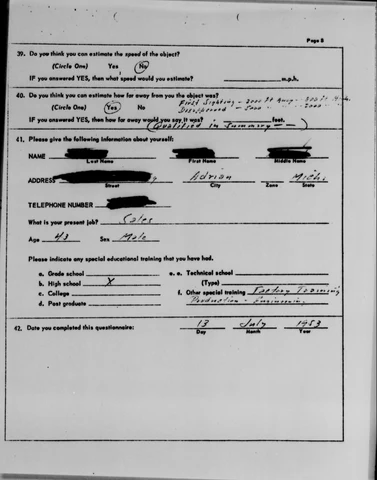 Page 8
39. Do you think you can estimate the speed of the object?
(Circle One) Yes No
IF you answered YES, then what speed would you estimate? m.p.h.
40. Do you think you can estimate how far away from you the object was?
(Circle One) Yes No First Sighting - 2000 ft
IF you answered YES, then how far away would you say it was? feet.
(Qualified in Summary)
41. Please give the following information about yourself:
NAME
Last Name First Name Middle Name
ADDRESS Adrian Mich.
Street City Zone State
TELEPHONE NUMBER
What is your present job? Sales
Age 43 Sex Male
Please indicate any special educational training that you have had.
a. Grade school e. e. Technical school
b. High school X (Type)
c. College f. Other special training Factory Training
d. Post graduate Production - Engineering
42. Date you completed this questionnaire: 13 July 1953
Day Month Year